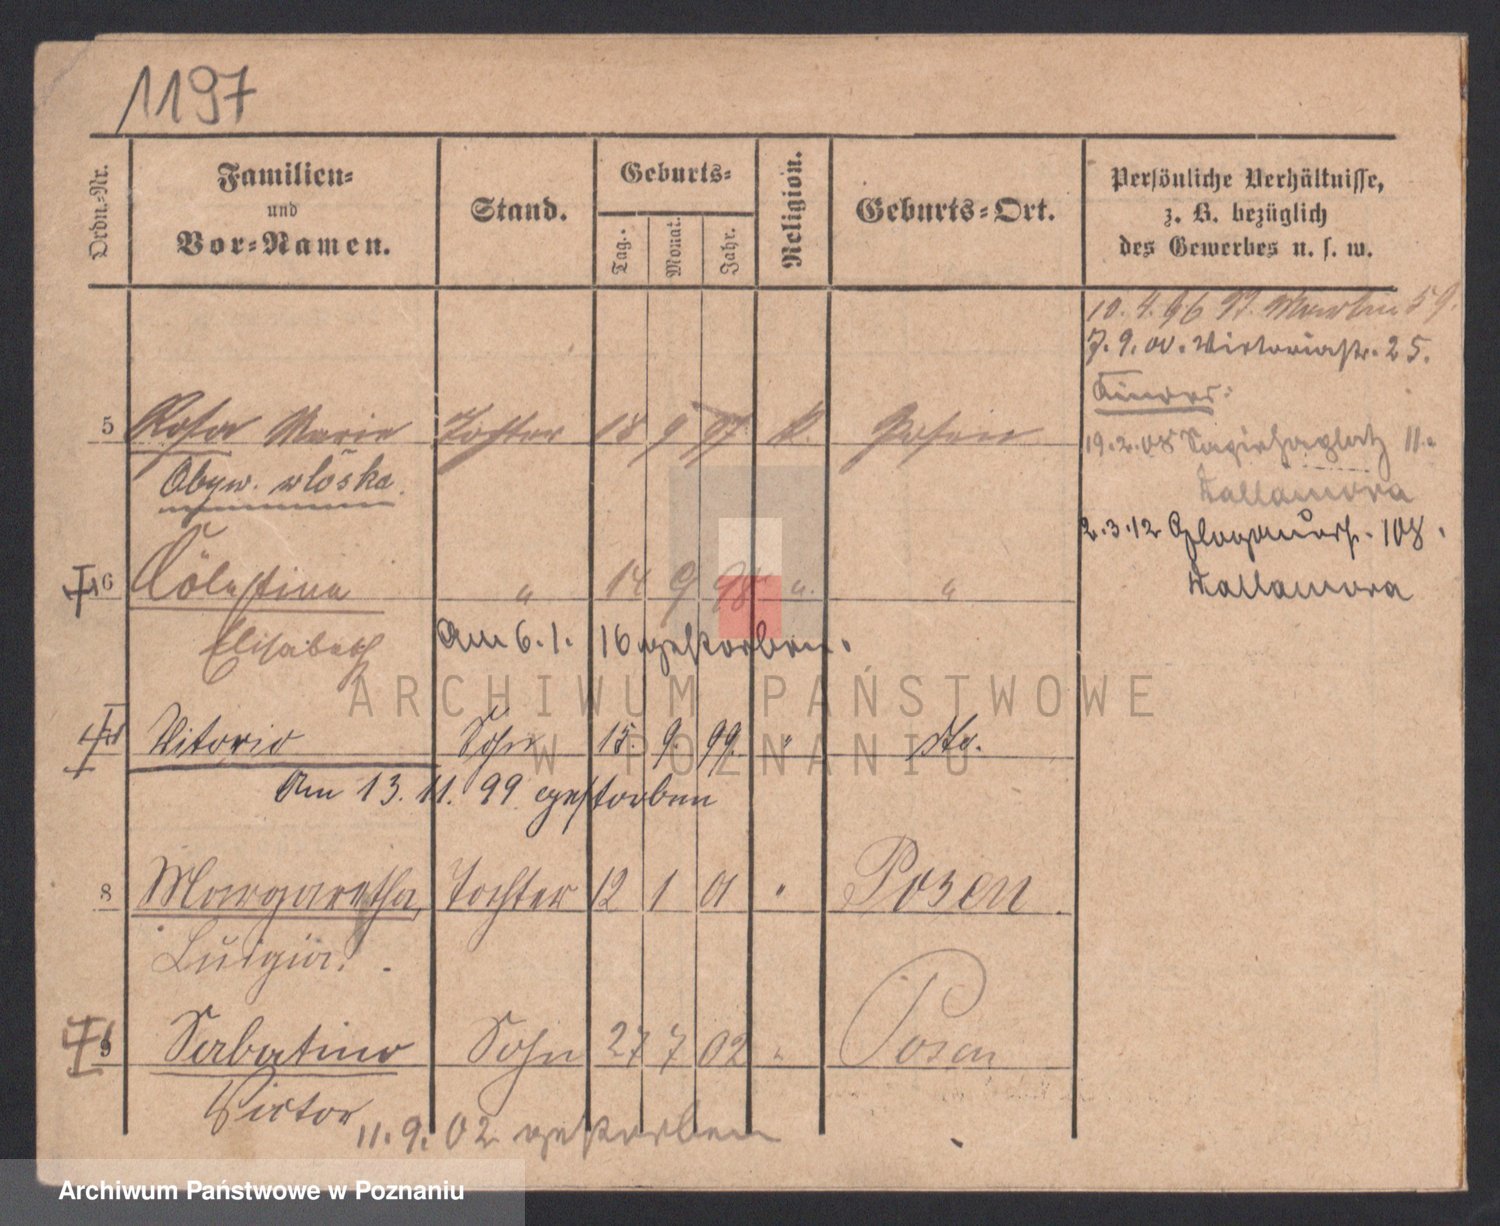 1197
Ordn.-Nr.
Familien-
und
Vor-Namen.
Stand.
Geburts-
Tag.
Monat.
Jahr.
Religion.
Geburts-Ort.
Persönliche Verhältnisse,
z. B. bezüglich
des Gewerbes u. s. w.
10. 4. 96 St. Martin 59.
7. 9. 00. Victoriastr. 25.
Kinder:
5 Rosa Marie Tochter 18 9 97 k. Posen
19. 2. 08 Sapiehaplatz 11.
Obyw. włoska.
Vallamora
2. 3. 12 Glogauerstr. 108.
6 Cölestina " 14 9 98 " "
Vallamora
Elisabeth Am 6. 1. 16 gestorben.
ARCHIWUM PAŃSTWOWE
W POZNANIU
Vitorio Sohn 15. 9. 99. " dto.
Am 13. 11. 99 gestorben
8 Margaretha, Tochter 12 1 01 " Posen.
Luigia.
9 Sabatino Sohn 27 7 02 " Posen
Victor
11. 9. 02 gestorben
Archiwum Państwowe w Poznaniu